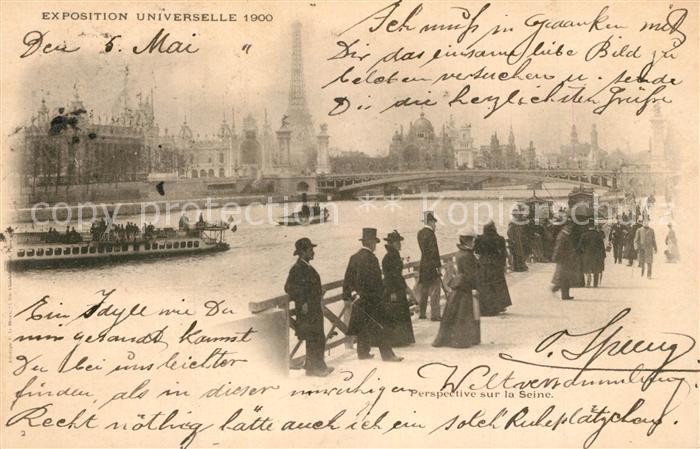 EXPOSITION UNIVERSELLE 1900
Den 5. Mai "
Ich muß in Gedanken mit
Dir das einsame liebe Bild zu
beleben versuchen u. sende
Dir die herzlichsten Grüße
© www.Copyright-Kopierschutz.de
Ein Idyll wie Du
mir gesandt kannst
Du bei uns leichter
finden, als in dieser unruhigen Weltversammlung.
Recht nöthig hätte auch ich ein solch Ruheplätzchen.
O. Spreng
Perspective sur la Seine.
2